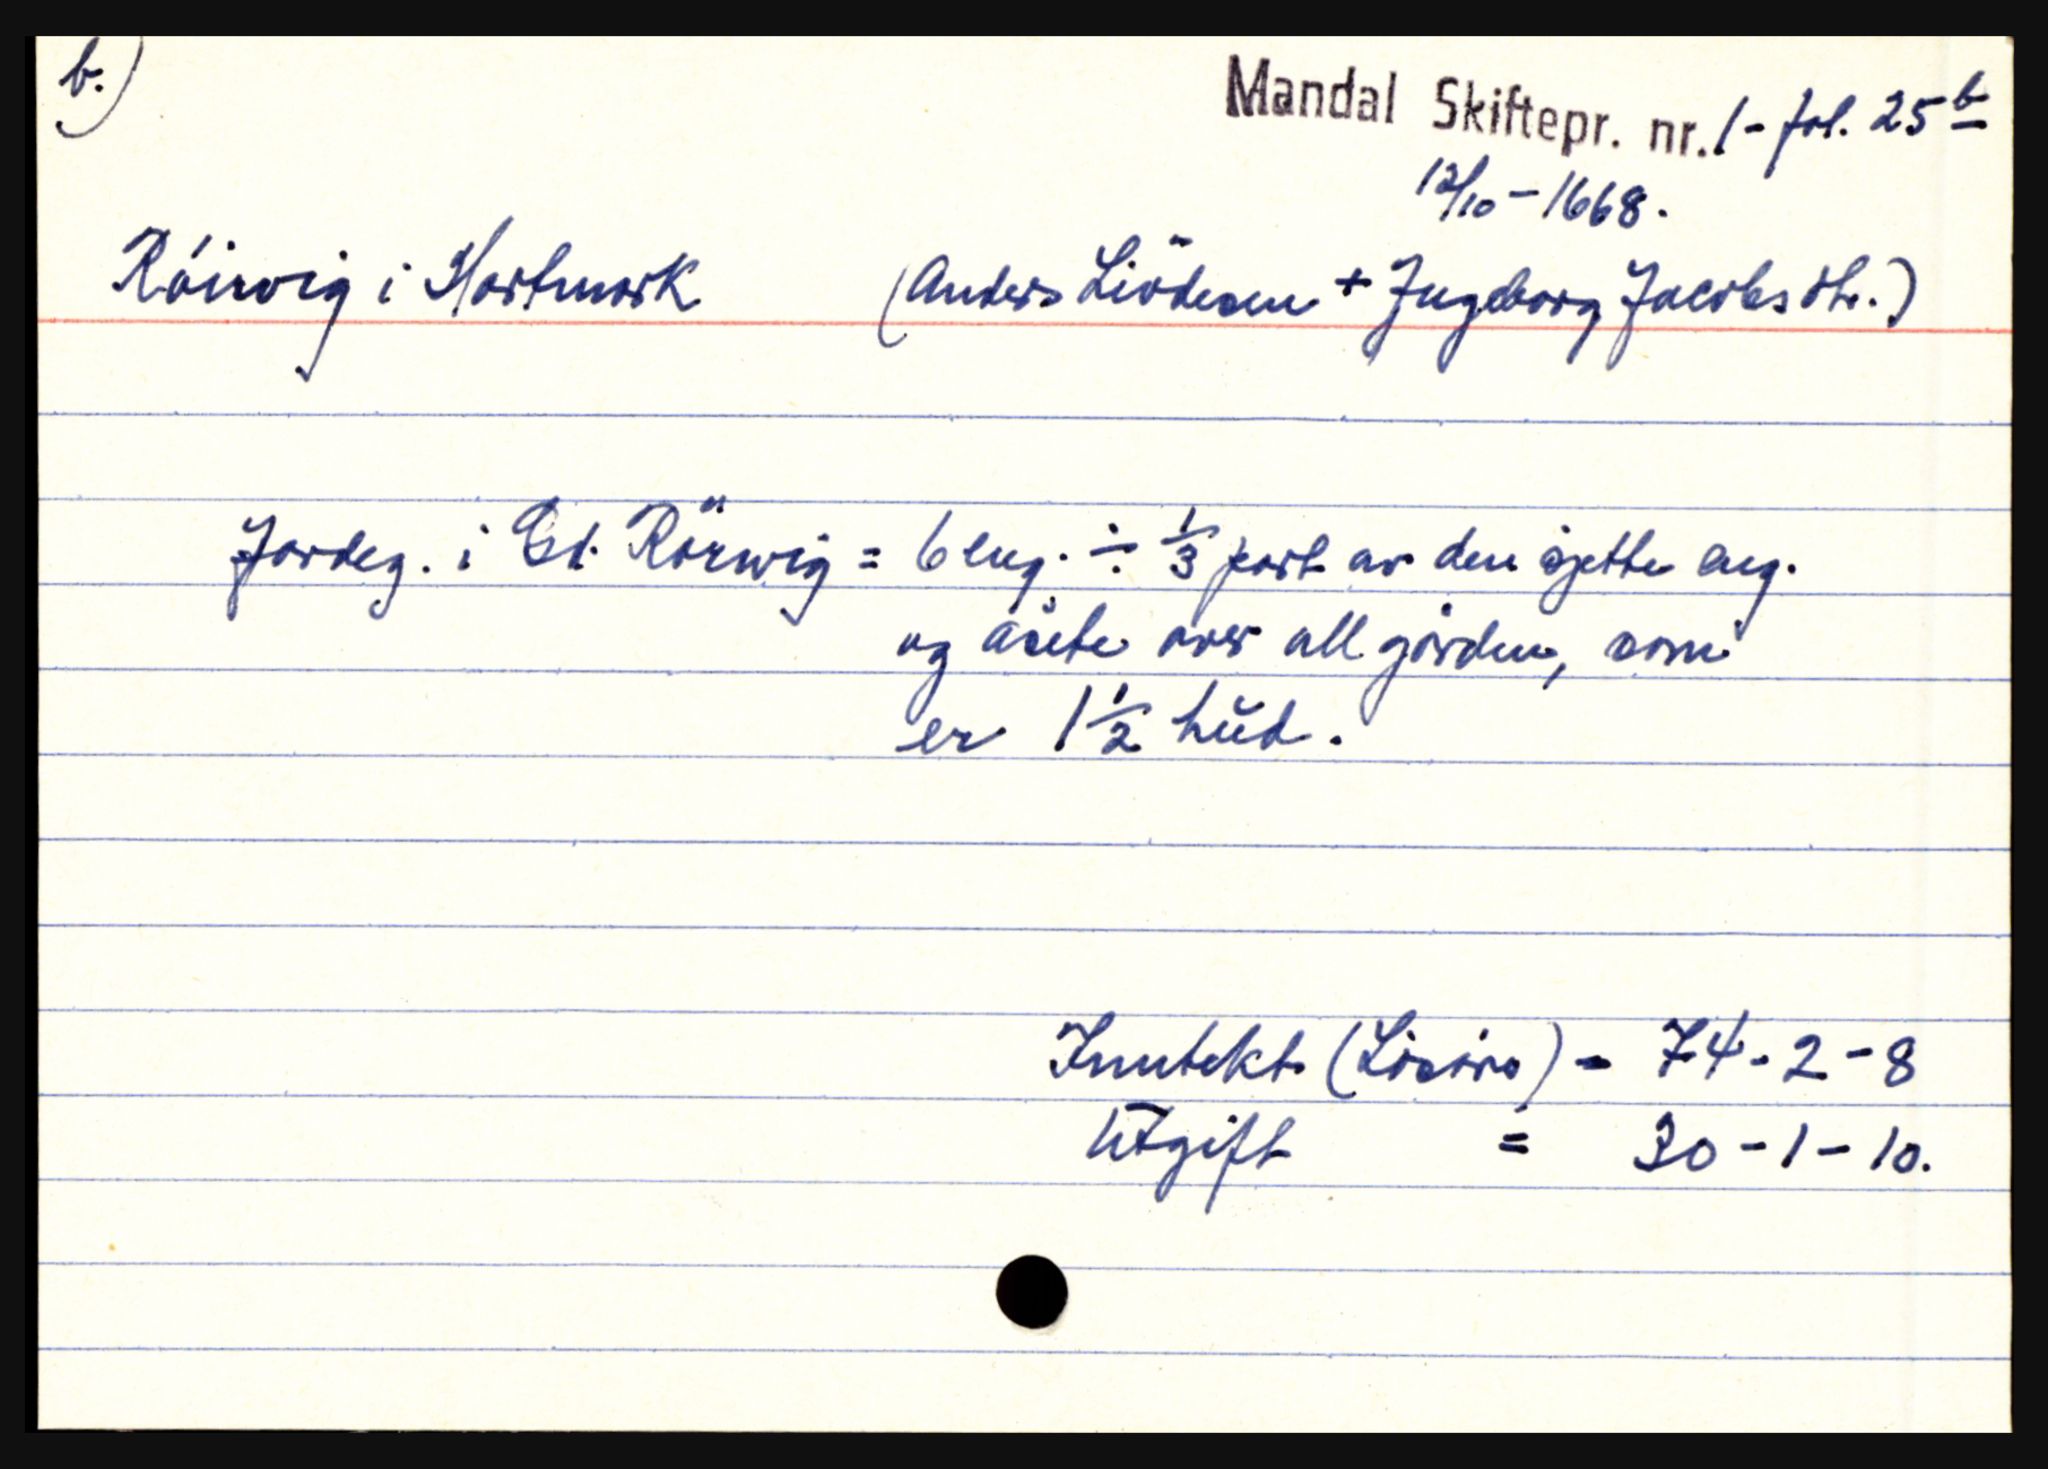 b.)
Mandal Skiftepr. nr. 1 - fol. 25 b
12/10 - 1668.
Röirvig i Hartmark (Anders Liödesen + Ingeborg Jacobsdtr.)
Jordeg. i Gd. Rörwig = 6 eng. ÷ 1/3 part av den sjette eng.
og åsete over all gården, som
er 1 1/2 hŭd.
Inntekt (Lösöre) = 74 - 2 - 8
Utgift = 30 - 1 - 10.